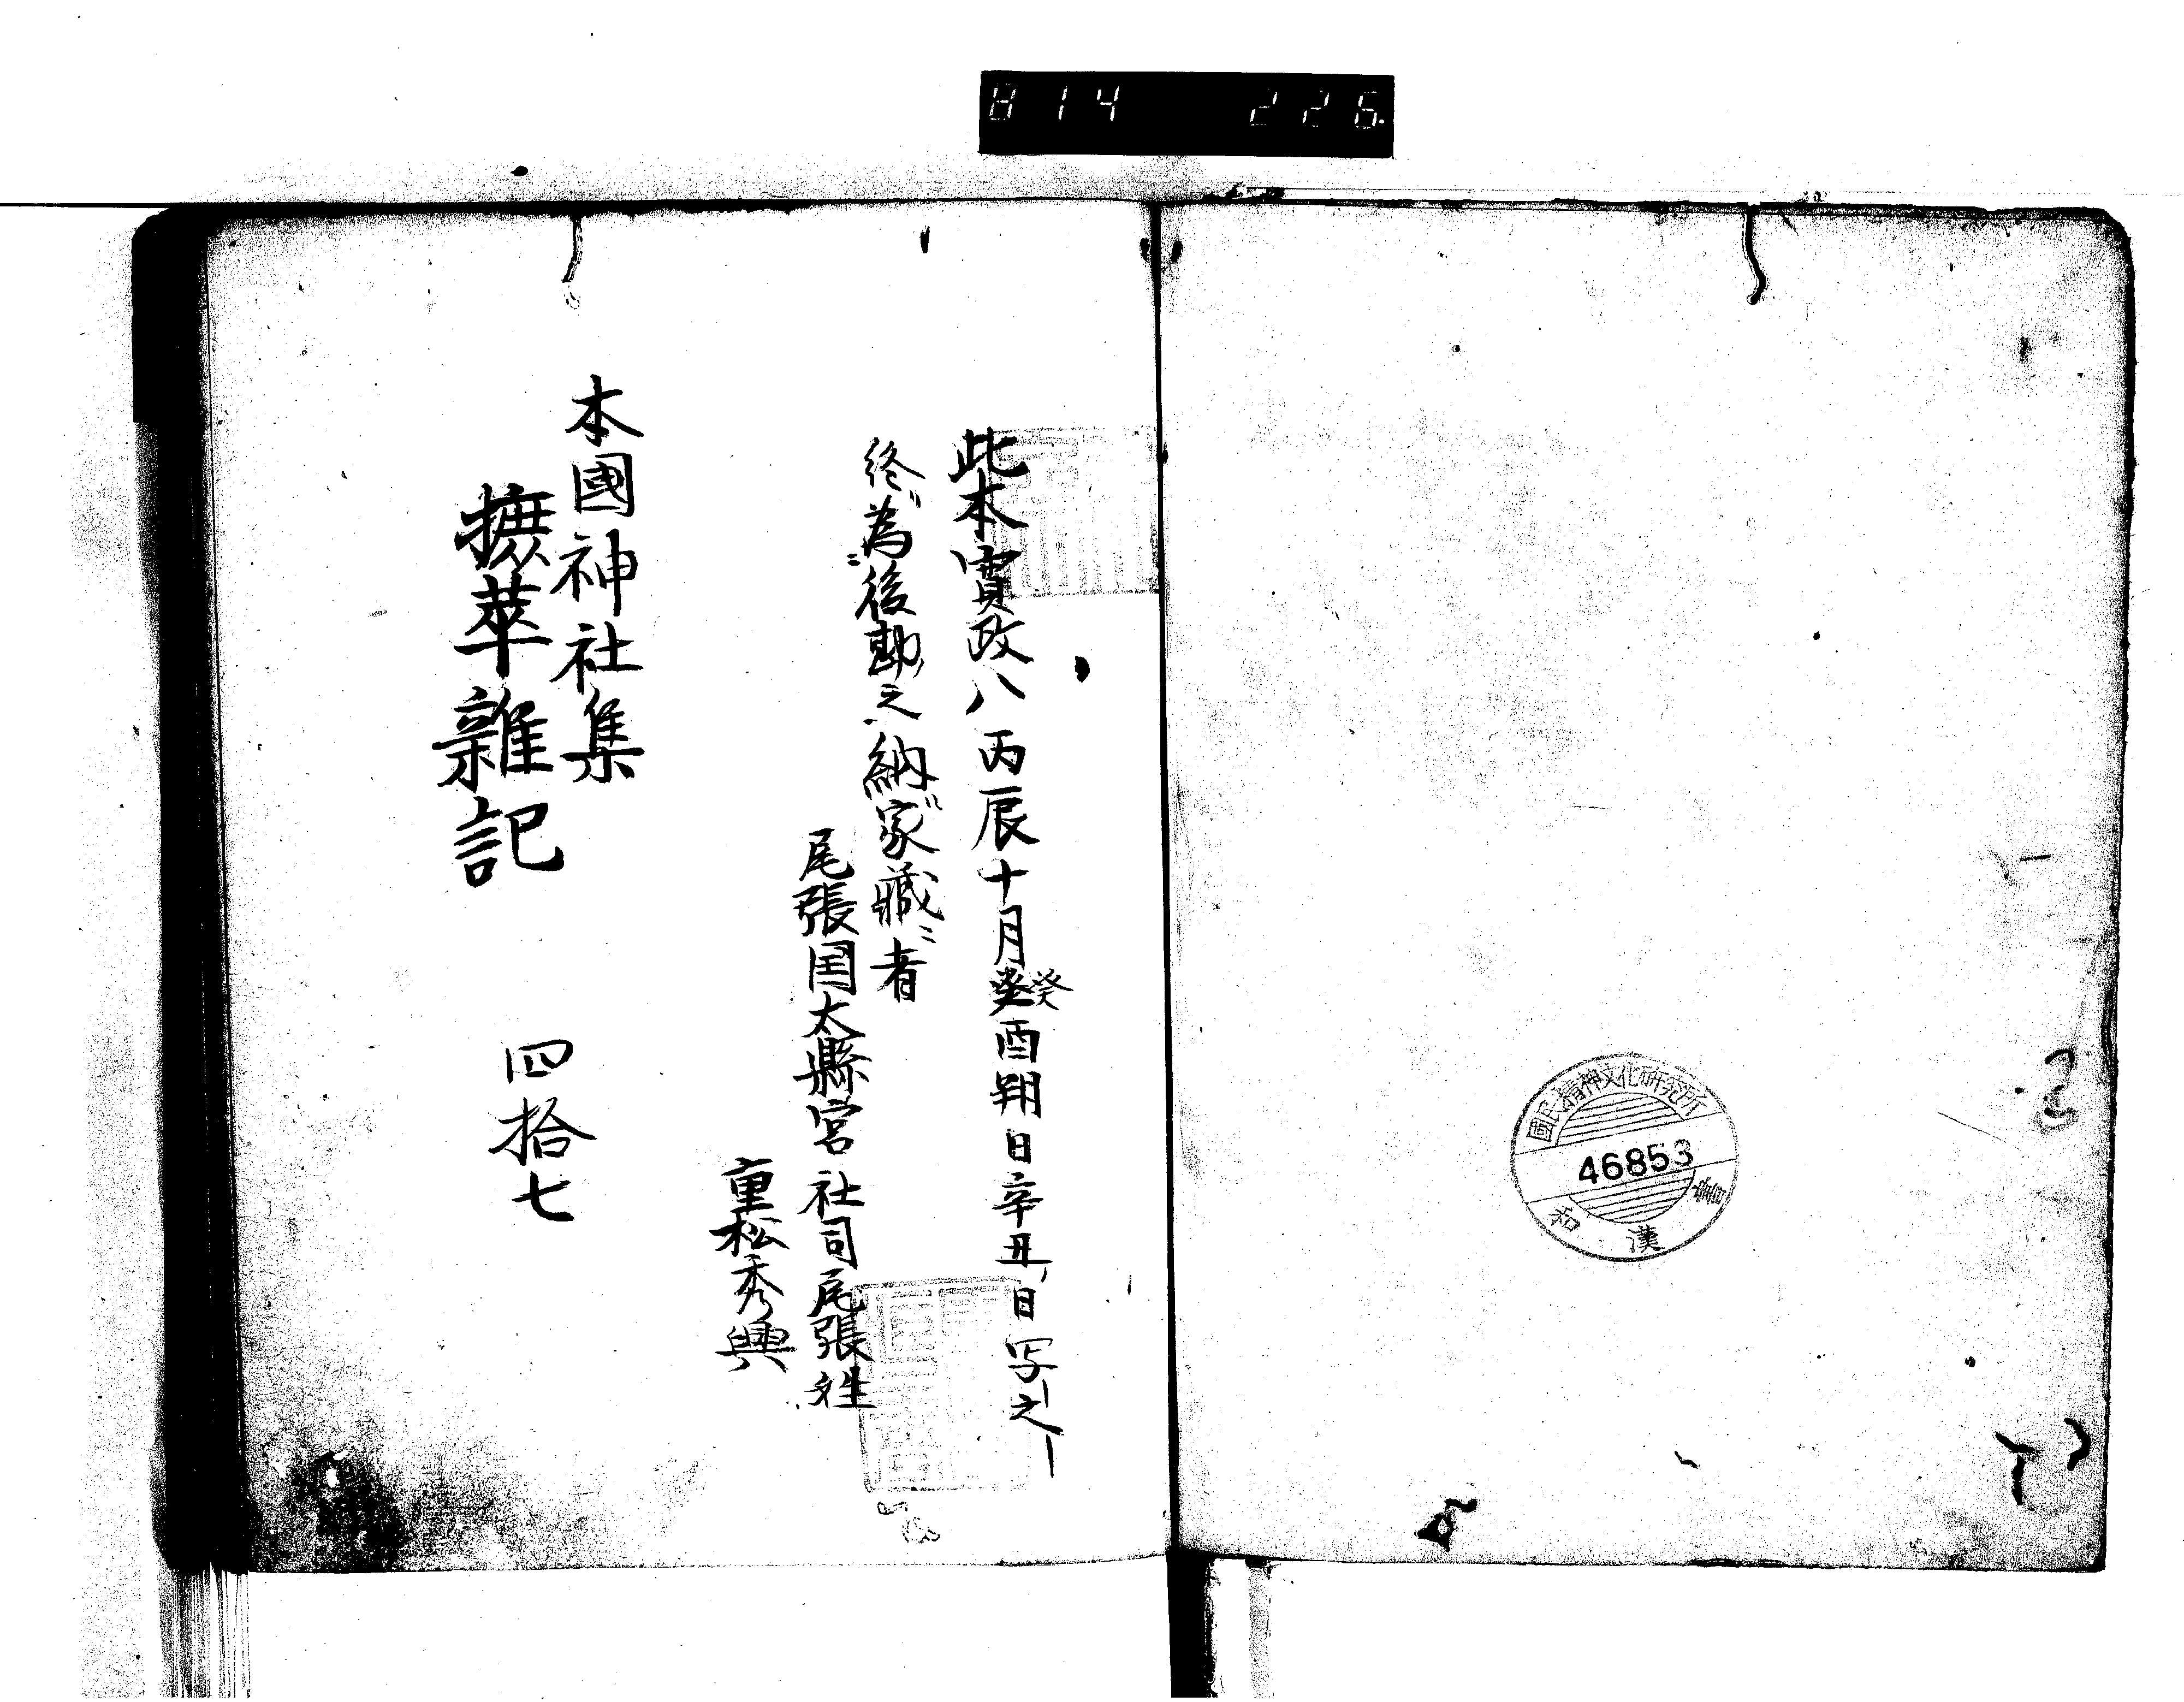 814 226
國民精神文化研究所
46853
和漢書
此本寛政八丙辰十月癸酉朔日辛丑日写之
癸
終為後勘之納家蔵者
尾張国太縣宮社司尾張姓
重松秀興
本國神社集
摭萃雜記 四拾七